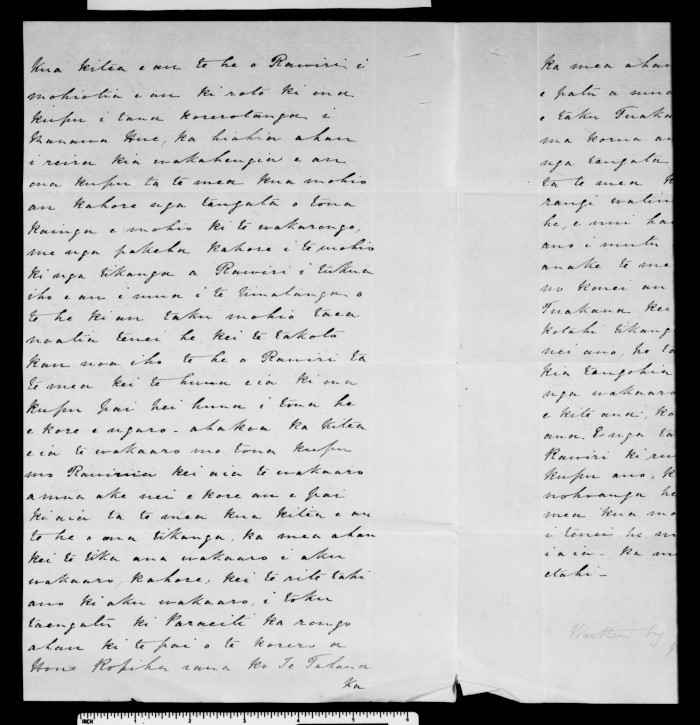 Kua kitea e au te he o Rawiri i
mohiotia e au ki roto ki ona
kupu i tana korerotanga i
Manawa Hue, ka hiahia ahau
i reira kia wakahengia e au
ona kupu ta te mea kua mohio
au kahore nga tangata o tona
kainga e mohio ki te wakarongo,
me nga pakeha kahore i te mohio
ki nga tikanga a Rawiri i tukua
iho e au i mua i te timatanga o
te he ki au taku mohio taea
noatia tenei he, kei te takoto
kau noa iho te he o Rawiri ta
te mea kei te huna e ia ki ona
kupu pai hei huna i tona he
e kore e ngaro - ahakoa ka kitea
e ia te wakaaro mo tona kupu
mo Rawiri kei aia te wakaaro
a mua ake nei e kore au e pai
ki aia ta te mea kua kitea e au
te he o ona tikanga, ka mea ahau
kei te tika ana wakaaro i aku
wakaaro, kahore, kei te rite tahi
ano ki aku wakaaro, i toku
taengatu ki Paraeiti ka rongo
ahau ki te pai o te korero a
Hone Ropiha raua ko Te Tatana
Ka
ka mea ahau
e patu a mua
e taku Tuaka
ma korua a
nga tangata
ta te mea k
rangi watiu
he, e nui ha
ano i mutu
anake te me
no konei au
Tuakana kei
kotahi tikang
nei ano, he ta
kia tangohia
nga wakaaro
e kite ana, ko
ana. E nga ta
Rawiri ki ru
kupu ano, k
nohoanga he
mea kua mo
i tenei he m
i a ia - ka m
etahi -
Written by